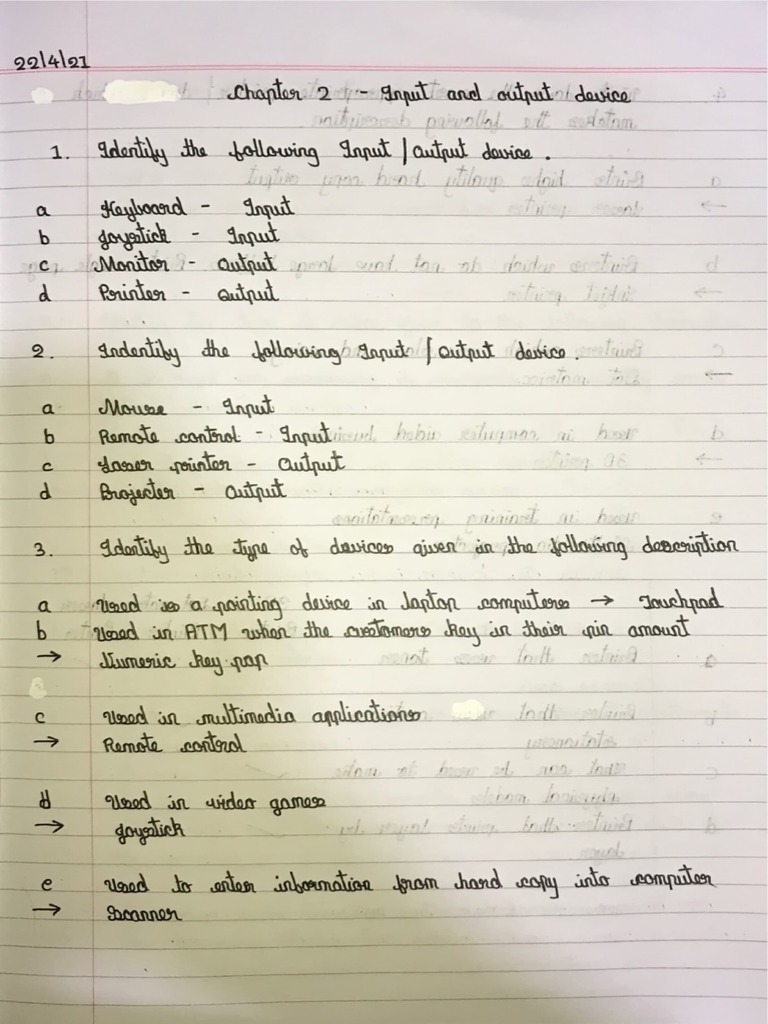 22/4/21
Chapter 2 - Input and output device
1. Identify the following Input / Output device.
a Keyboard - Input
b Joystick - Input
c Monitor - Output
d Printer - Output
2. Indentify the following Input / Output device.
a Mouse - Input
b Remote control - Input
c Laser pointer - Output
d Projecter - Output
3. Identify the type of devices given in the following description
a Used is a pointing device in laptop computers → Touchpad
b Used in ATM when the customers key in their pin amount
→ Numeric key pap
c Used in multimedia applications
→ Remote control
d Used in video games
→ Joystick
e Used to enter information from hard copy into computer
→ Scanner